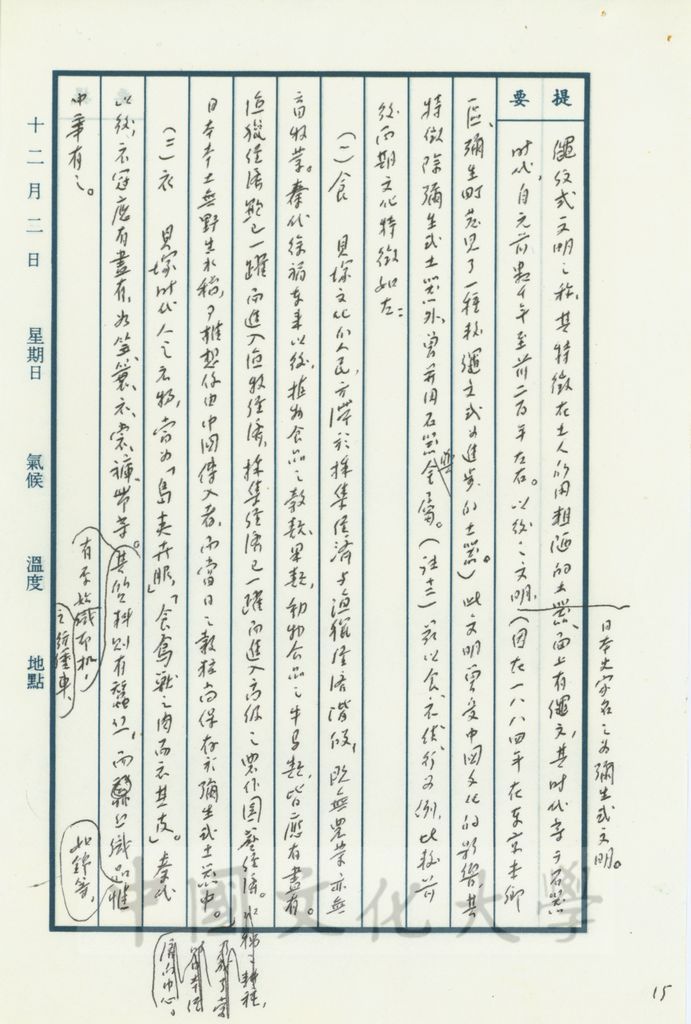 提要
繩紋式文明之稱，其特徵在土人所用粗陋的土器，面上有繩文，其時代等于石器
時代，自元前數千年至前二百年左右。以後之文明，日本史家名之為彌生式文明。（因在一八八四年在東京本鄉
區、彌生町發見了一種較繩文式為進步的土器。）此文明曾受中國文化的影響，其
特徵除彌生式土器外，曾兼用石器與金屬。（註十三）茲以食衣住行為例，比較前
後兩期文化特徵如左：
（一）食　貝塚文化的人民，方滯於採集經濟與漁獵經濟階段，既無農業亦無
畜牧業。秦代徐福東來以後，植物食品之穀類果類，動物食品之牛馬類，皆應有盡有。
漁獵經濟範已一躍而進入漁牧經濟，採集經濟已一躍而進入高級之農作園藝經濟。水稻之耕種，
日本本土無野生水稻，可推想係由中國傳入者，而當日之穀粒尚保存於彌生式土器中。
（二）衣　貝塚時代人之衣物，當為「島夷卉服」，「食鳥獸之肉而衣其皮」。秦代
以後，衣冠應有盡有，如笠、簑、衣、裳、褲、帶等。其質料則有蠶絲，而絲織品惟
中華有之。
有原始織布機，
之紡錘車，
如錦等，
十二月二日　星期日　氣候　溫度　地點
15
中國文化大學